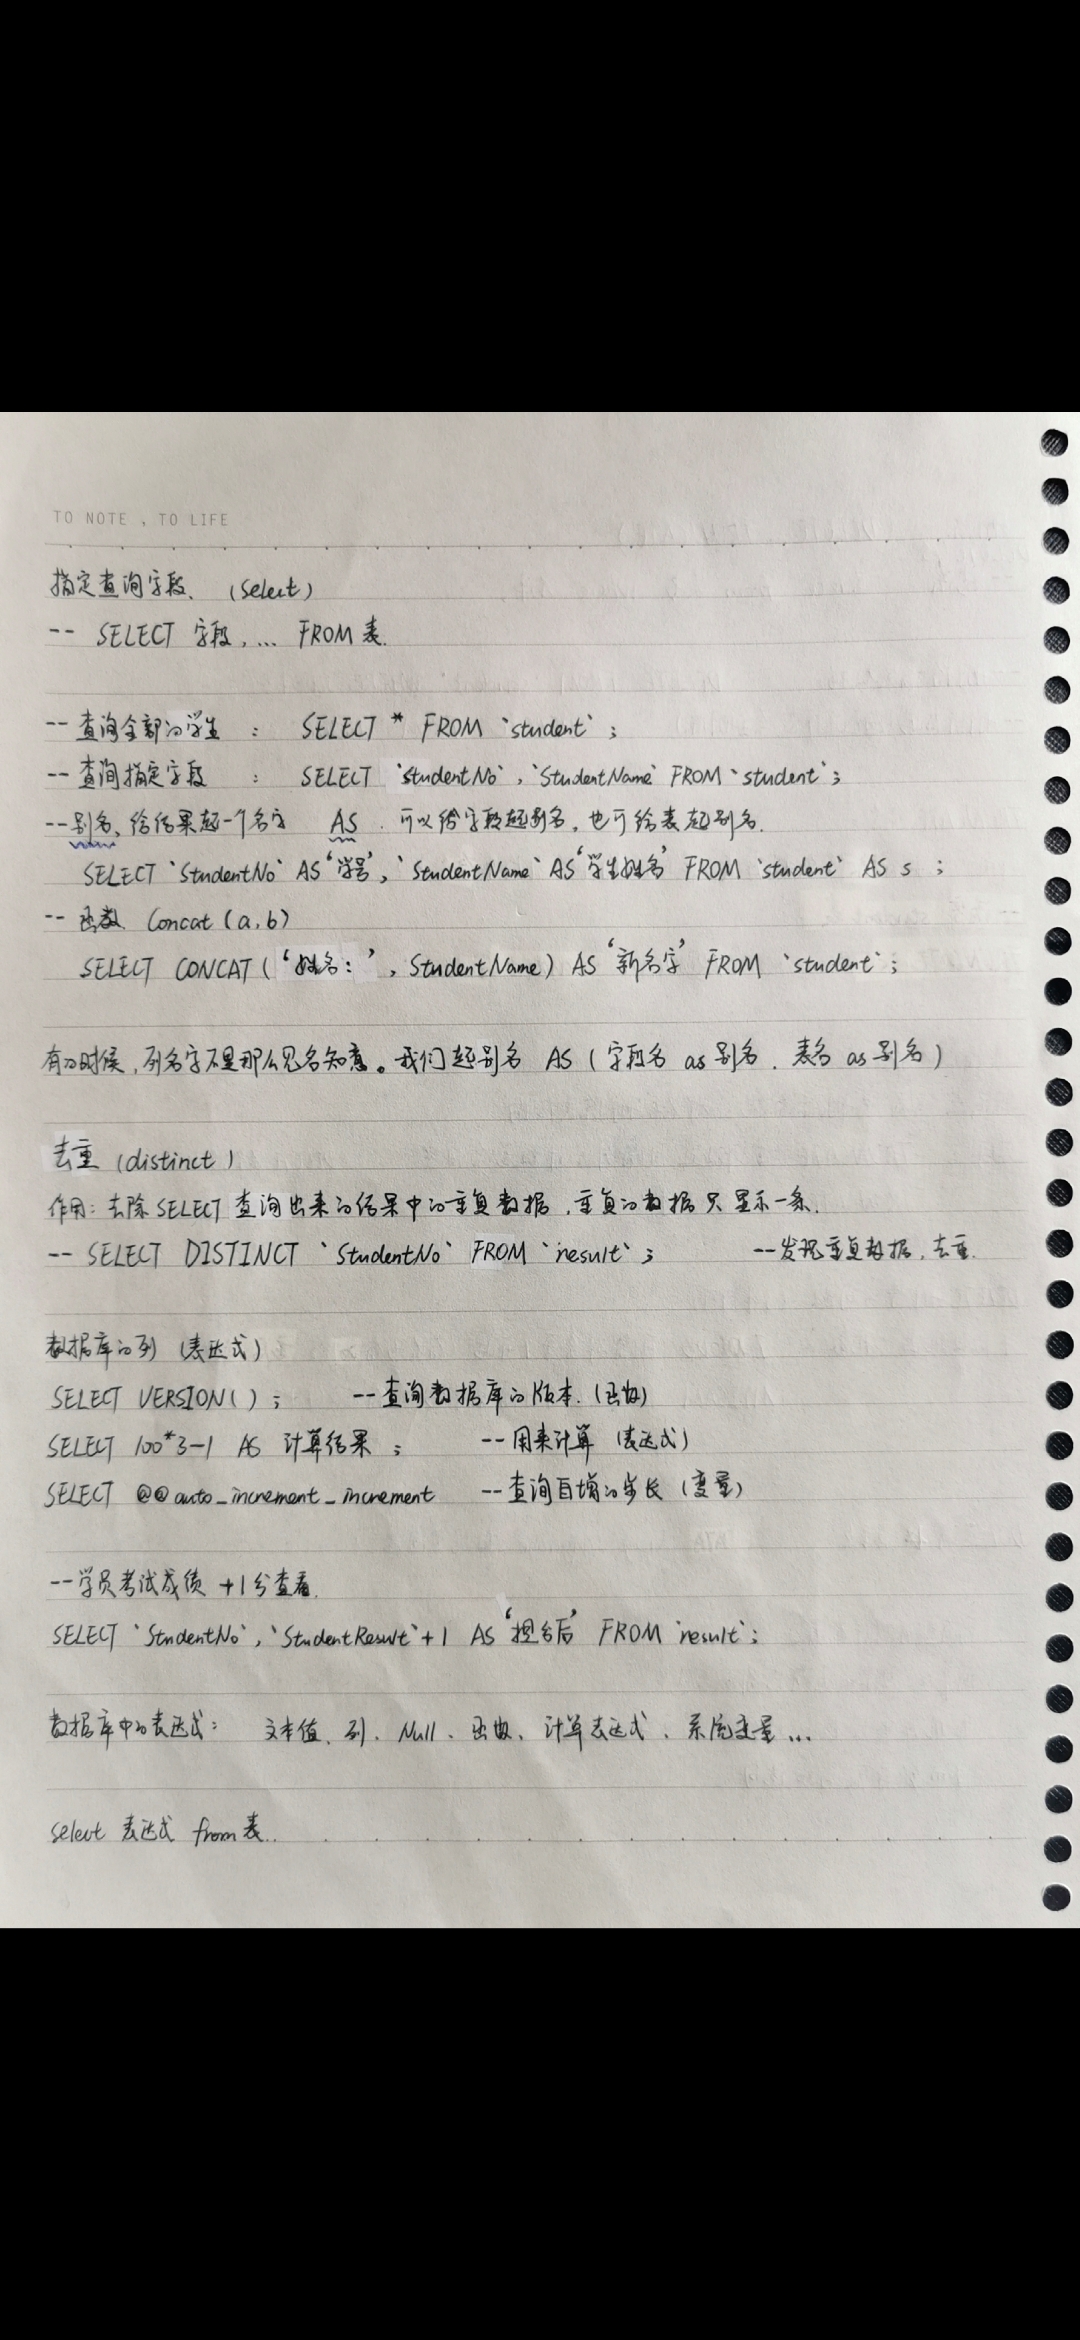 TO NOTE , TO LIFE
指定查询字段. (select)
-- SELECT 字段, ... FROM 表.
-- 查询全部的学生 : SELECT * FROM `student` ;
-- 查询指定字段 : SELECT `studentNo`, `StudentName` FROM `student`;
-- 别名, 给结果起一个名字 AS . 可以给字段起别名, 也可给表起别名.
SELECT `StudentNo` AS '学号', `StudentName` AS '学生姓名' FROM `student` AS s ;
-- 函数 Concat (a,b)
SELECT CONCAT ('姓名:', StudentName) AS '新名字' FROM `student`;
有的时候, 列名字不是那么见名知意。我们起别名 AS (字段名 as 别名 . 表名 as 别名)
去重 (distinct)
作用: 去除 SELECT 查询出来的结果中的重复数据, 重复的数据只显示一条.
-- SELECT DISTINCT `StudentNo` FROM `result` ; -- 发现重复数据, 去重.
数据库的列 (表达式)
SELECT VERSION() ; -- 查询数据库的版本. (函数)
SELECT 100*3-1 AS 计算结果 ; -- 用来计算 (表达式)
SELECT @@auto_increment_increment -- 查询自增的步长 (变量)
-- 学员考试成绩 +1分查看.
SELECT `StudentNo`, `StudentResult`+1 AS '提分后' FROM `result`;
数据库中的表达式: 文本值、列、Null、函数、计算表达式、系统变量...
select 表达式 from 表.